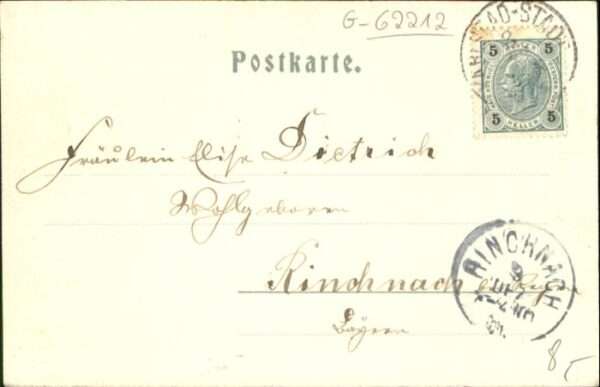 G-62212
Postkarte.
5 5
HELLER
5 5
Fräulein Elise Dietrich
Wohlgeboren
Rinchnach
Bayern
RINCHNACH
85